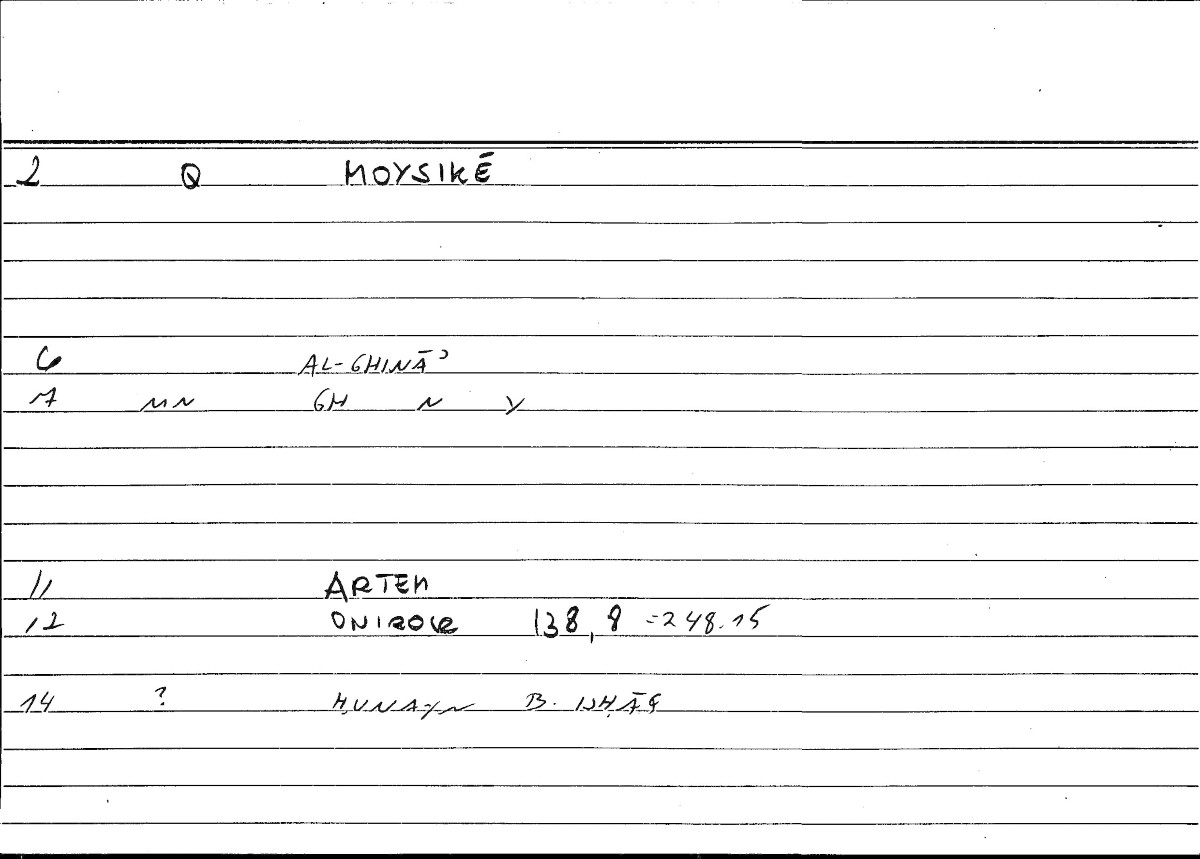 2 Q MOYSIKĒ
6 AL-GHINĀʾ
7 MN GH N Y
11 ARTEM
12 ONIROCR 138,8 =248.15
14 ? ḤUNAYN B. ISḤĀQ